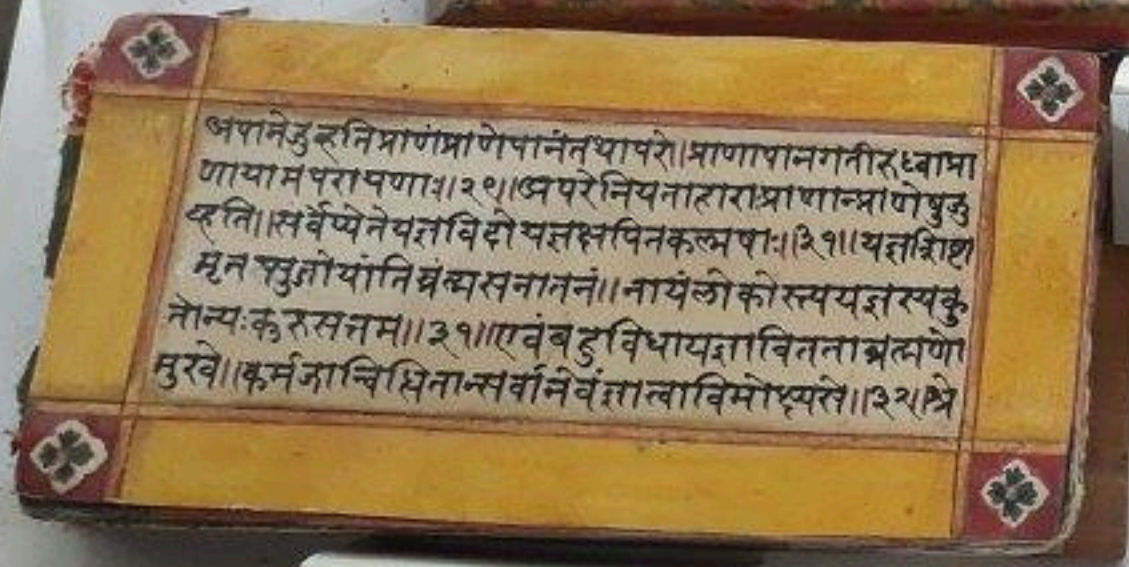 अपानेजुह्वतिप्राणंप्राणेपानंतथापरे॥प्राणापानगतीरुध्वाप्रा
णायामपरायणाः॥२९॥अपरेनियताहाराःप्राणान्प्राणेषुजु
ह्वति॥सर्वेप्येतेयज्ञविदोयज्ञक्षपितकल्मषाः॥३१॥यज्ञशिष्टा
मृतभुजोयांतिब्रंह्मसनातनं॥नायंलोकोस्त्ययज्ञस्यकु
तोन्यःकरुसत्तम॥३१॥एवंबहुविधायज्ञावितताब्रह्मणो
मुखे॥कर्मजान्विधितान्सर्वानेवंज्ञात्वाविमोक्ष्यसे॥३२॥श्रे